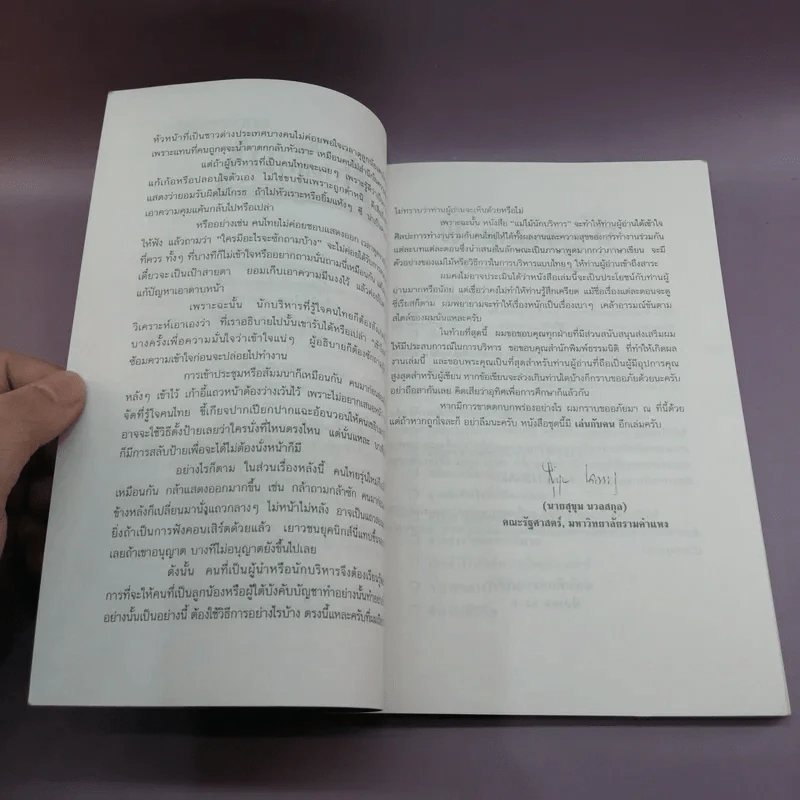 หัวหน้าที่เป็นชาวต่างประเทศบางคนไม่ค่อยพอใจเวลาดุลูกน้อง
เพราะแทนที่คนถูกดุจะน้ำตาตกกลับหัวเราะ เหมือนคนไม่สำนึก
แต่ถ้าผู้บริหารที่เป็นคนไทยจะเฉยๆ เพราะรู้ดีว่า
แก้เก้อหรือปลอบใจตัวเอง ไม่ใช่ขบขันเพราะถูกตำหนิ
แสดงว่ายอมรับผิดไม่โกรธ ถ้าไม่หัวเราะหรือยิ้มแหยๆ ซี
เอาความคุมแค้นกลับไปหรือเปล่า
หรืออย่างเช่น คนไทยไม่ค่อยชอบแสดงออก
ให้ฟัง แล้วถามว่า "ใครมีอะไรจะซักถามบ้าง" จะไม่ค่อยได้รับ
ที่ควร ทั้งๆ ที่บางทีก็ไม่เข้าใจหรืออยากถามนั่นถามนี่เหมือนกัน
เดี๋ยวจะเป็นเป้าสายตา ยอมเก็บเอาความมึนงงไว้ แล้วค่อย
แก้ปัญหาเอาดาบหน้า
เพราะฉะนั้น นักบริหารที่รู้ใจคนไทยก็ต้อง
วิเคราะห์เอาเองว่า ที่เราอธิบายไปนั้นเขารับได้หรือเปล่า
บางครั้งเพื่อความมั่นใจว่าเข้าใจแน่ๆ ผู้อธิบายก็ต้องซักถาม
ซ้อมความเข้าใจก่อนจะปล่อยไปทำงาน
การเข้าประชุมหรือสัมมนาก็เหมือนกัน คนมาก่อน
หลังๆ เข้าไว้ เก้าอี้แถวหน้าต้องว่างเว้นไว้ เพราะไม่อยากเสนอหน้า
จัดที่รู้ใจคนไทย ขี้เกียจปากเปียกปากแฉะอ้อนวอนให้คน
อาจจะใช้วิธีตั้งป้ายเลยว่าใครนั่งที่ไหนตรงไหน แต่นั่นแหละ
ก็มีการสลับป้ายเพื่อจะได้ไม่ต้องนั่งหน้าก็มี
อย่างไรก็ตาม ในส่วนเรื่องหลังนี้ คนไทยรุ่นใหม่
เหมือนกัน กล้าแสดงออกมากขึ้น เช่น กล้าถามกล้าซัก คนมา
ข้างหลังก็เปลี่ยนมานั่งแถวกลางๆ ไม่หน้าไม่หลัง อาจเป็น
ยิ่งถ้าเป็นการฟังคอนเสิร์ตด้วยแล้ว เยาวชนยุคนิกส์นี่แทบขึ้น
เลยถ้าเขาอนุญาต บางทีไม่อนุญาตยังขึ้นไปเลย
ดังนั้น คนที่เป็นผู้นำหรือนักบริหารจึงต้องเรียนรู้
การที่จะให้คนที่เป็นลูกน้องหรือผู้ใต้บังคับบัญชาทำอย่างนั้น
อย่างนั้นเป็นอย่างนี้ ต้องใช้วิธีการอย่างไรบ้าง ตรงนี้แหละครับที่ผม
ไม่ทราบว่าท่านผู้อ่านจะเห็นด้วยหรือไม่
เพราะฉะนั้น หนังสือ "แม่ไม้นักบริหาร" จะทำให้ท่านผู้อ่านได้เข้าใจ
ศิลปะการทำงานร่วมกับคนไทยให้ได้ทั้งผลงานและความสุขของการทำงานร่วมกัน
แต่ละบทแต่ละตอนซึ่งนำเสนอในลักษณะเป็นภาษาพูดมากกว่าภาษาเขียน จะมี
ตัวอย่างของแม่ไม้หรือวิธีการในการบริหารแบบไทยๆ ให้ท่านผู้อ่านเข้าถึงสาระ
ผมคงไม่อาจประเมินได้ว่าหนังสือเล่มนี้จะเป็นประโยชน์กับท่านผู้
อ่านมากหรือน้อย แต่เชื่อว่าคงไม่ทำให้ท่านรู้สึกเครียด แม้ชื่อเรื่องแต่ละตอนจะดู
ซีเรียสก็ตาม ผมพยายามจะทำเรื่องหนักเป็นเรื่องเบาๆ เคล้าอารมณ์ขันตาม
สไตล์ของผมนั่นแหละครับ
ในท้ายที่สุดนี้ ผมขอขอบคุณทุกฝ่ายที่มีส่วนสนับสนุนส่งเสริมผม
ให้มีประสบการณ์ในการบริหาร ขอขอบคุณสำนักพิมพ์ธรรมนิติ ที่ทำให้เกิดผล
งานเล่มนี้ และขอบพระคุณเป็นที่สุดสำหรับท่านผู้อ่านที่ถือเป็นผู้มีอุปการคุณ
สูงสุดสำหรับผู้เขียน หากข้อเขียนจะล่วงเกินท่านใดบ้างก็กราบขออภัยด้วยนะครับ
อย่าถือสากันเลย คิดเสียว่าอุทิศเพื่อการศึกษาก็แล้วกัน
หากมีการขาดตกบกพร่องอย่างไร ผมกราบขออภัยมา ณ ที่นี้ด้วย
แต่ถ้าหากถูกใจละก็ อย่าลืมนะครับ หนังสือชุดนี้มี เล่นกับคน อีกเล่มครับ
(นายสุขุม นวลสกุล)
คณะรัฐศาสตร์, มหาวิทยาลัยรามคำแหง